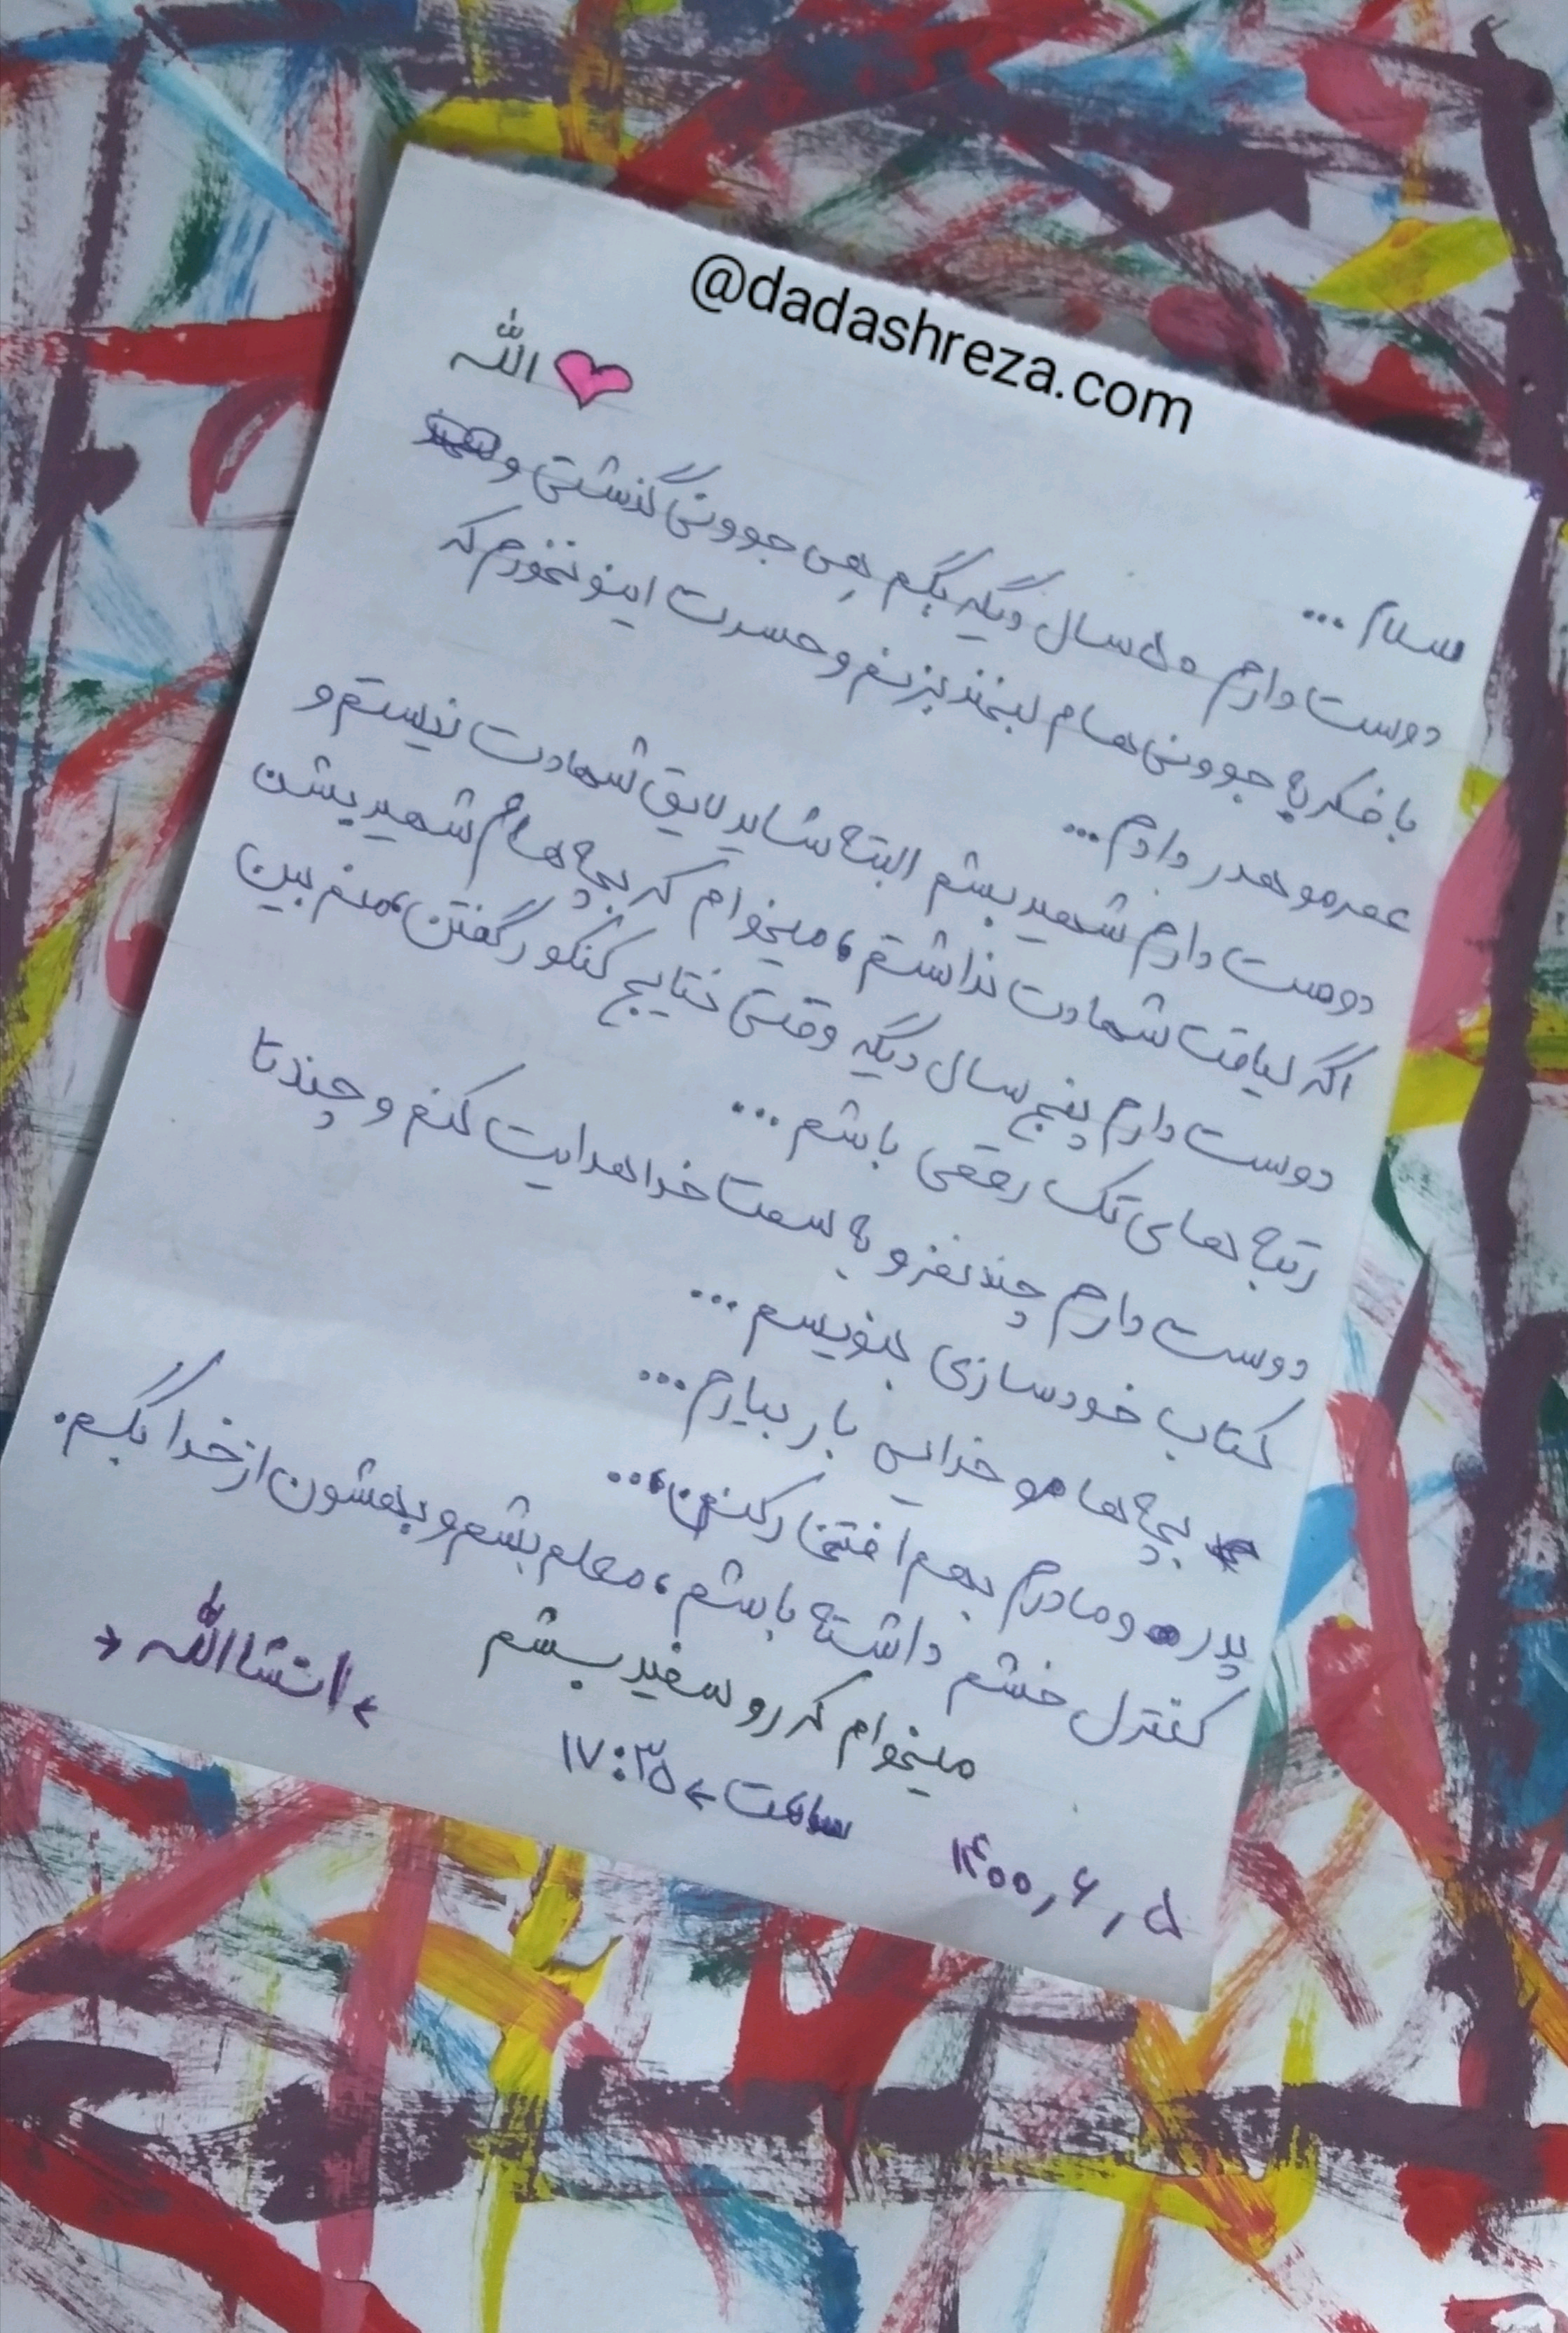 @dadashreza.com
الله
سلام ...
دوست دارم ۵۰ سال دیگه بگم هِی جوونی گذشتی و
با فکر به جوونی هام لبخند بزنم و حسرت اینو نخورم که
عمرمو هدر دادم...
دوست دارم شهید بشم البته شاید لایق شهادت نیستم و
اگه لیاقت شهادت نداشتم، میخوام که بچه هام شهید بشن
دوست دارم پنج سال دیگه وقتی نتایج کنکور گفتن، منم بین
رتبه های تک رقمی باشم ...
دوست دارم چند نفرو به سمت خدا هدایت کنم و چند تا
کتاب خودسازی بنویسم ...
بچه هامو خدایی بار بیارم...
پدر و مادرم بهم افتخار کنن،...
کنترل خشم داشته باشم، معلم بشم و بهشون از خدا بگم.
میخوام که رو سفید بشم
>انشاالله<
ساعت > ۱۷:۳۵
۱۴۰۰,۶,۵